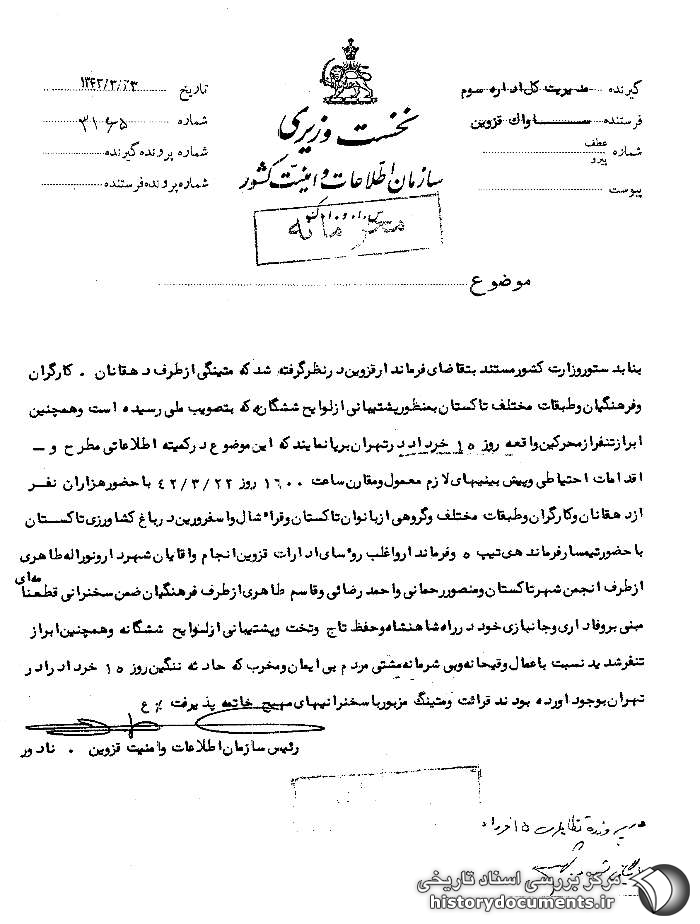 گیرنده مدیریت کل اداره سوم
فرستنده ساواک قزوین
شماره عطف
پیرو
پیوست
نخست وزیری
سازمان اطلاعات و امنیت کشور
تاریخ ۱۳۴۲/۳/۲۳
شماره ۳۱۶۵
شماره پرونده گیرنده
شماره پرونده فرستنده
محرمانه
موضوع
بنا بدستور وزارت کشور مستند بتقاضای فرماندار قزوین در نظر گرفته شد که متینگی از طرف دهقانان . کارگران
و فرهنگیان و طبقات مختلف تاکستان بمنظور پشتیبانی از لوایح ششگانه که بتصویب ملی رسیده است و همچنین
ابراز تنفر از محرکین واقعه روز ۱۵ خرداد در تهران برپا نمایند که این موضوع در کمیته اطلاعاتی مطرح و –
اقدامات احتیاطی و پیش بینیهای لازم معمول و مقارن ساعت ۱۶۰۰ روز ۴۲/۳/۲۲ با حضور هزاران نفر
از دهقانان و کارگران و طبقات مختلف و گروهی از بانوان تاکستان و قراء شال و اسفرورین در باغ کشاورزی تاکستان
با حضور تیمسار فرماندهی تیپ و فرماندار و اغلب روسای ادارات قزوین انجام و اقایان شهردار و نوراله طاهری
از طرف انجمن شهر تاکستان و منصور رحمانی و احمد رضائی و قاسم طاهری از طرف فرهنگیان ضمن سخنرانی قطعنامه‌ای
مبنی بر وفاداری و جانبازی خود در راه شاهنشاه و حفظ تاج و تخت و پشتیبانی از لوایح ششگانه و همچنین ابراز
تنفر شدید نسبت باعمال وقیحانه و بی شرمانه مشتی مردم بی ایمان و مخرب که حادثه ننگین روز ۱۵ خرداد را در
تهران بوجود اورده بودند قرائت و متینگ مزبور با سخنرانیهای مهیج خاتمه پذیرفت ٪ ع
رئیس سازمان اطلاعات و امنیت قزوین . نادور
در پرونده تظاهرات ۱۵ خرداد
مرکز بررسی اسناد تاریخی
historydocuments.ir